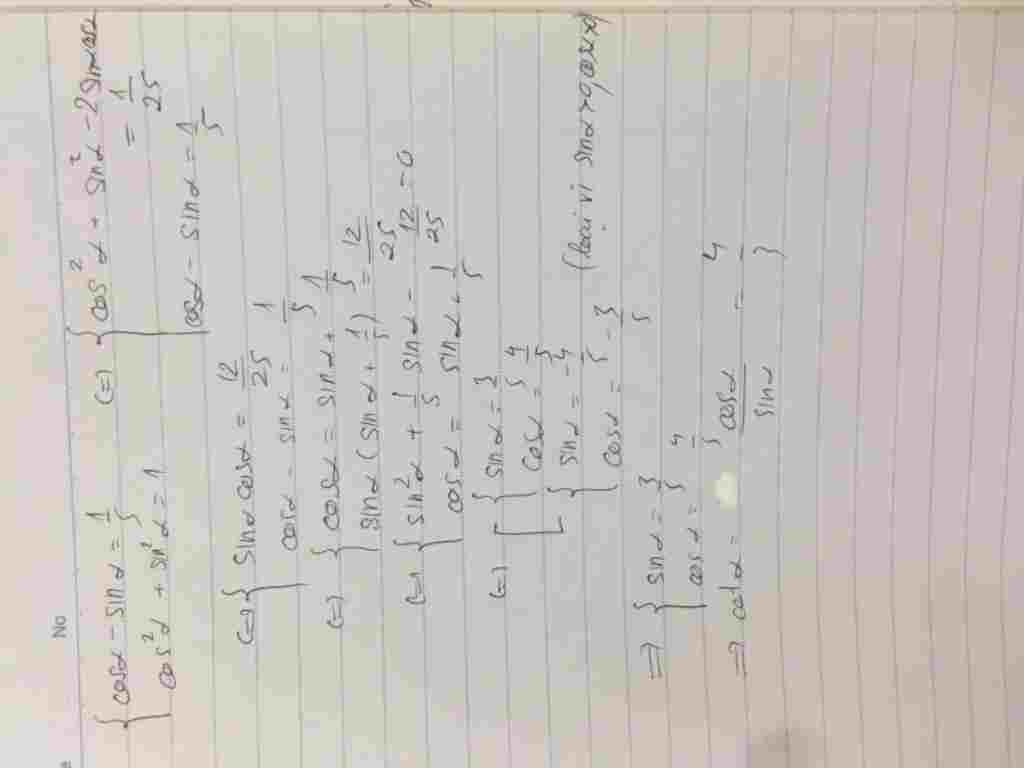 No
{ cosα - sinα = 1/5
cos²α + sin²α = 1
(=) { cos²α + sin²α - 2 sinαcosα = 1/25
cosα - sinα = 1/5
(=) { sinα cosα = 12/25
cosα - sinα = 1/5
(=) { cosα = sinα + 1/5
sinα (sinα + 1/5) = 12/25
(=) { sin²α + 1/5 sinα - 12/25 = 0
cosα = sinα + 1/5
(=) [ { sinα = 3/5
cosα = 4/5
{ sinα = -4/5
cosα = -3/5 (loại vì sinα >0, cosα >0)
=> { sinα = 3/5
cosα = 4/5
=> cotα = cosα/sinα = 4/3